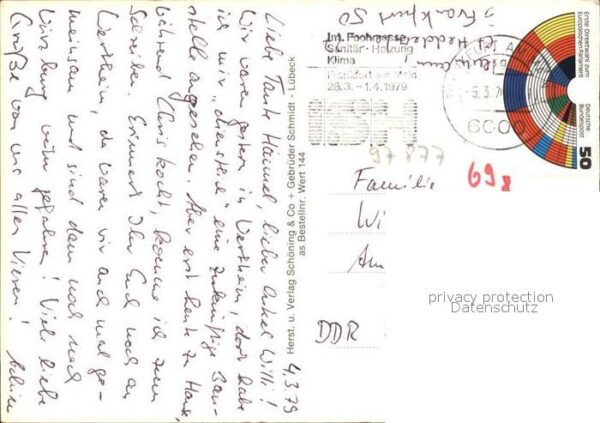 Liebe Tante Hämmel, lieber Onkel Willi!
Wir waren gestern in Wertheim, dort habe
ich mir „dienstlich" eine zukünftige Bau-
stelle angesehen. Aber erst heute zu Hause,
während Chris kocht, komme ich zum
Schreiben. Erinnert Ihr Euch noch an
Wertheim, da waren wir auch mal ge-
meinsam und sind dann noch nach
Würzburg weiter gefahren! Viele liebe
Grüße von uns allen Vieren!
4.3.79
Herst. u. Verlag Schöning & Co + Gebrüder Schmidt - Lübeck
as Bestellnr. Wert 144
Int. Fachmesse
Sanitär · Heizung
Klima
Frankfurt am Main
28.3. – 1.4.1979
ISH
Frankfurt 50
- 5.3.79
6000
Erste Direktwahl zum
Europäischen Parlament
Deutsche
Bundespost
50
97877
69
Familie
Wi
Am
DDR
privacy protection
Datenschutz